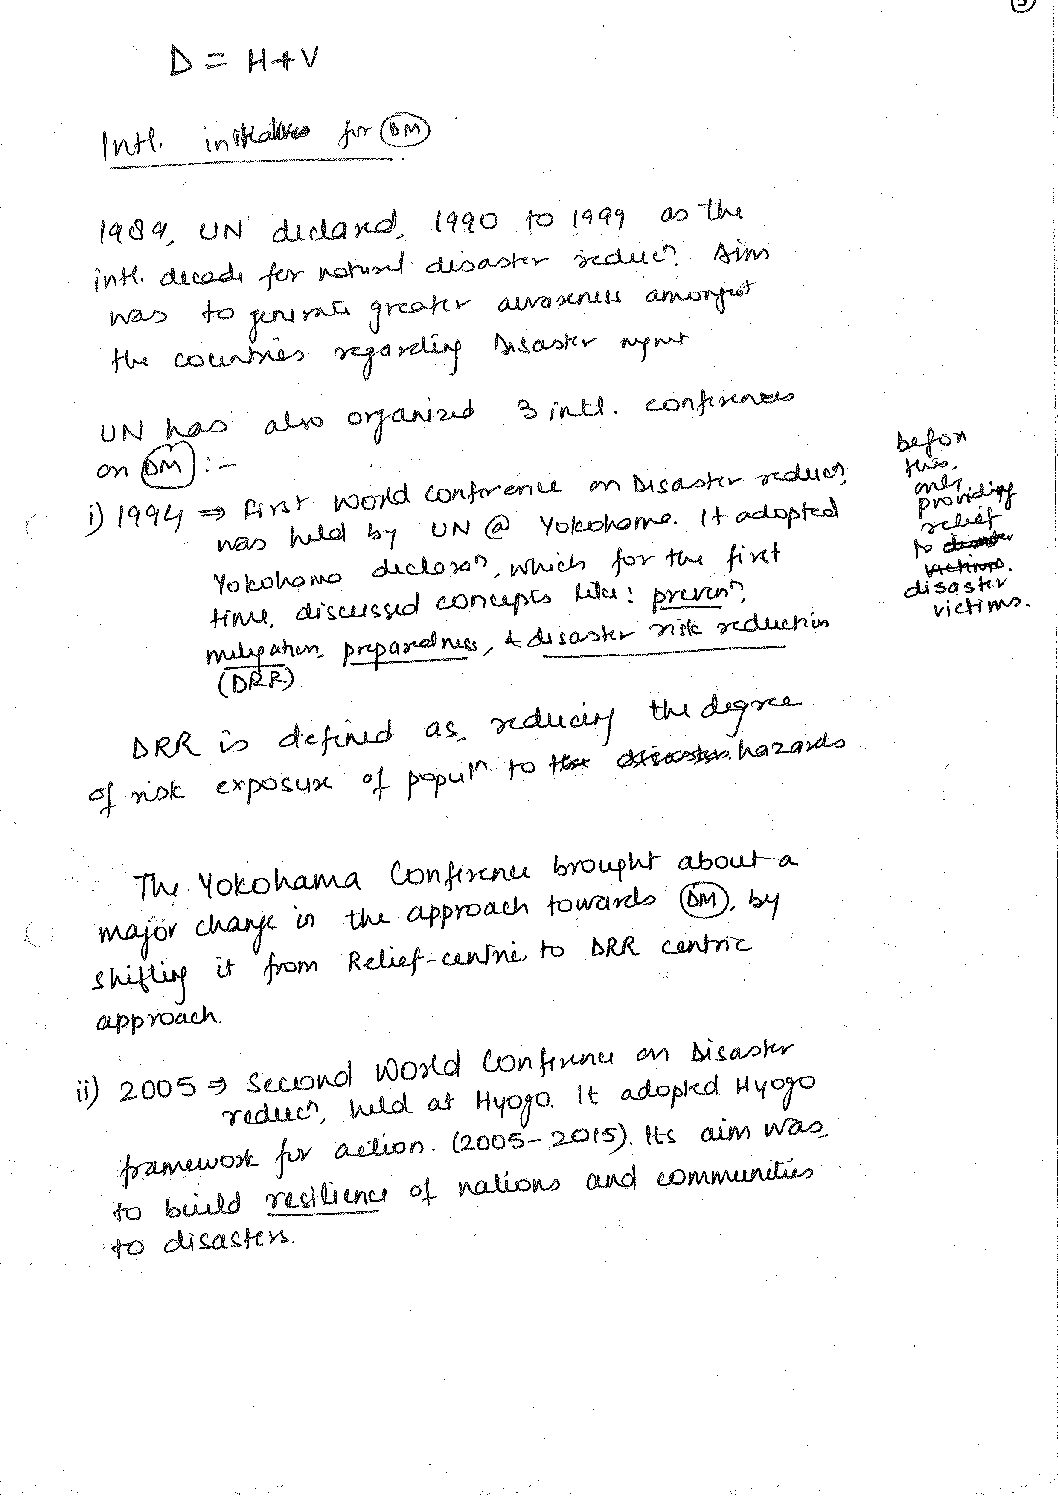 D = H+V
Intl. initiatives for DM
1989, UN declared, 1990 to 1999 as the
intl. decade for natural disaster reducn. Aim
was to generate greater awareness amongst
the countries regarding Disaster mgmt
UN has also organized 3 intl. conferences
on DM :-
i) 1994 ⇒ First World Conference on Disaster reducn,
was held by UN @ Yokohama. It adopted
Yokohama declaran, which for the first
time, discussed concepts like: prevenn,
mitigation, preparedness, & disaster risk reduction
(DRR)
before
this,
only
providing
relief
to disaster
victims.
disaster
victims.
DRR is defined as, reducing the degree
of risk exposure of populn to the disasters hazards
The Yokohama Conference brought about a
major change in the approach towards DM, by
shifting it from Relief-centric to DRR centric
approach.
ii) 2005 ⇒ Second World Conference on Disaster
reducn, held at Hyogo. It adopted Hyogo
framework for action. (2005-2015). Its aim was,
to build resilience of nations and communities
to disasters.